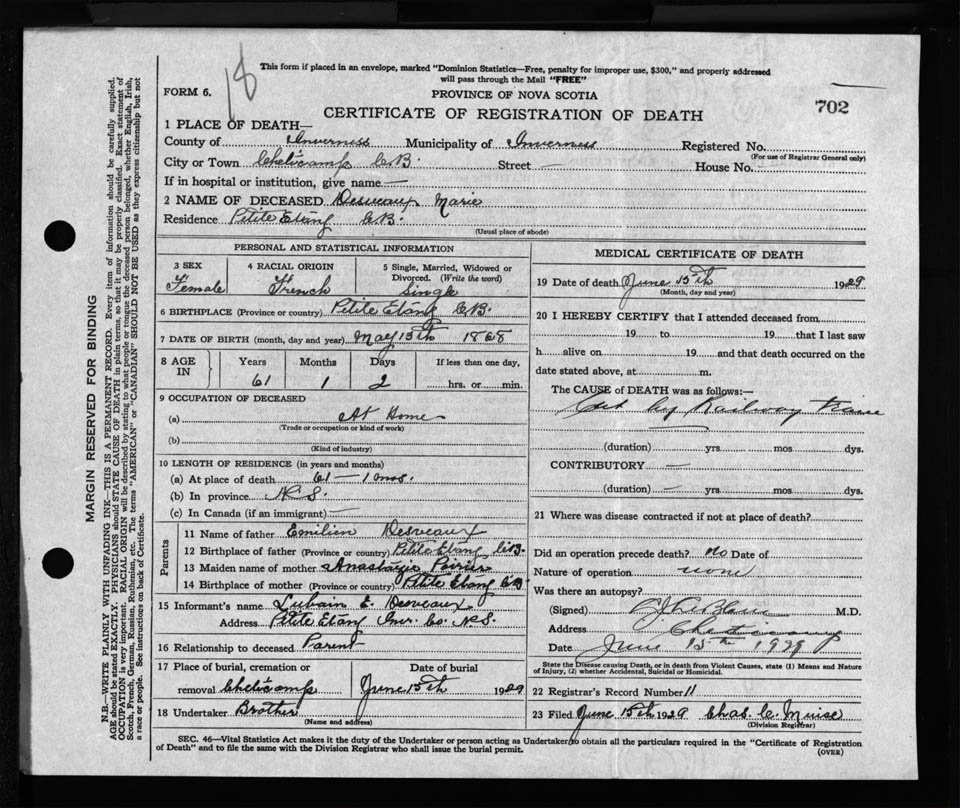 18
This form if placed in an envelope, marked "Dominion Statistics—Free, penalty for improper use, $300," and properly addressed
will pass through the Mail "FREE"
FORM 6.
PROVINCE OF NOVA SCOTIA
702
CERTIFICATE OF REGISTRATION OF DEATH
1 PLACE OF DEATH—
County of Inverness Municipality of Inverness Registered No.
(For use of Registrar General only)
City or Town Cheticamp C.B. Street — House No.
If in hospital or institution, give name —
2 NAME OF DECEASED Desveaux Marie
Residence Petite Etang C.B.
(Usual place of abode)
PERSONAL AND STATISTICAL INFORMATION
3 SEX 4 RACIAL ORIGIN 5 Single, Married, Widowed or
Divorced. (Write the word)
Female French Single
6 BIRTHPLACE (Province or country) Petite Etang C.B.
7 DATE OF BIRTH (month, day and year) May 13th 1868
8 AGE IN Years Months Days If less than one day,
61 1 2 hrs. or min.
9 OCCUPATION OF DECEASED
(a) At Home
(Trade or occupation or kind of work)
(b)
(Kind of industry)
10 LENGTH OF RESIDENCE (in years and months)
(a) At place of death 61 — 1 mos.
(b) In province N.S.
(c) In Canada (if an immigrant) —
Parents
11 Name of father Emilien Desveaux
12 Birthplace of father (Province or country) Petite Etang C.B.
13 Maiden name of mother Anastasie Poirier
14 Birthplace of mother (Province or country) Petite Etang C.B
15 Informant's name Lubain E. Desveaux
Address Petite Etang Inv. Co. N.S.
16 Relationship to deceased Parent
17 Place of burial, cremation or Date of burial
removal Cheticamp June 15th 1929
18 Undertaker Brother
(Name and address)
MEDICAL CERTIFICATE OF DEATH
19 Date of death June 15th 1929
(Month, day and year)
20 I HEREBY CERTIFY that I attended deceased from
19 to 19 that I last saw
h alive on 19 and that death occurred on the
date stated above, at m.
The CAUSE of DEATH was as follows:
Cut by Railway Train
(duration) yrs mos dys.
CONTRIBUTORY —
(duration) — yrs mos dys.
21 Where was disease contracted if not at place of death?
Did an operation precede death? no Date of
Nature of operation none
Was there an autopsy?
(Signed) LeBlanc M.D.
Address Cheticamp
Date June 15th 1929
State the Disease causing Death, or in death from Violent Causes, state (1) Means and Nature
of Injury, (2) whether Accidental, Suicidal or Homicidal.
22 Registrar's Record Number 11
23 Filed June 15th 1929 Chas. C. Muise
(Division Registrar)
SEC. 46—Vital Statistics Act makes it the duty of the Undertaker or person acting as Undertaker to obtain all the particulars required in the "Certificate of Registration
of Death" and to file the same with the Division Registrar who shall issue the burial permit.
(OVER)
MARGIN RESERVED FOR BINDING
N.B.—WRITE PLAINLY WITH UNFADING INK—THIS IS A PERMANENT RECORD. Every item of information should be carefully supplied.
AGE should be stated EXACTLY. PHYSICIANS should STATE CAUSE OF DEATH in plain terms, so that it may be properly classified. Exact statement of
OCCUPATION is very important. RACIAL ORIGIN will be described by stating to what people or tongue the deceased person belonged, whether English, Irish,
Scotch, French, German, Russian, Ruthenian, etc. The terms "AMERICAN" or "CANADIAN" SHOULD NOT BE USED as they express citizenship but not
a race or people. See instructions on back of Certificate.